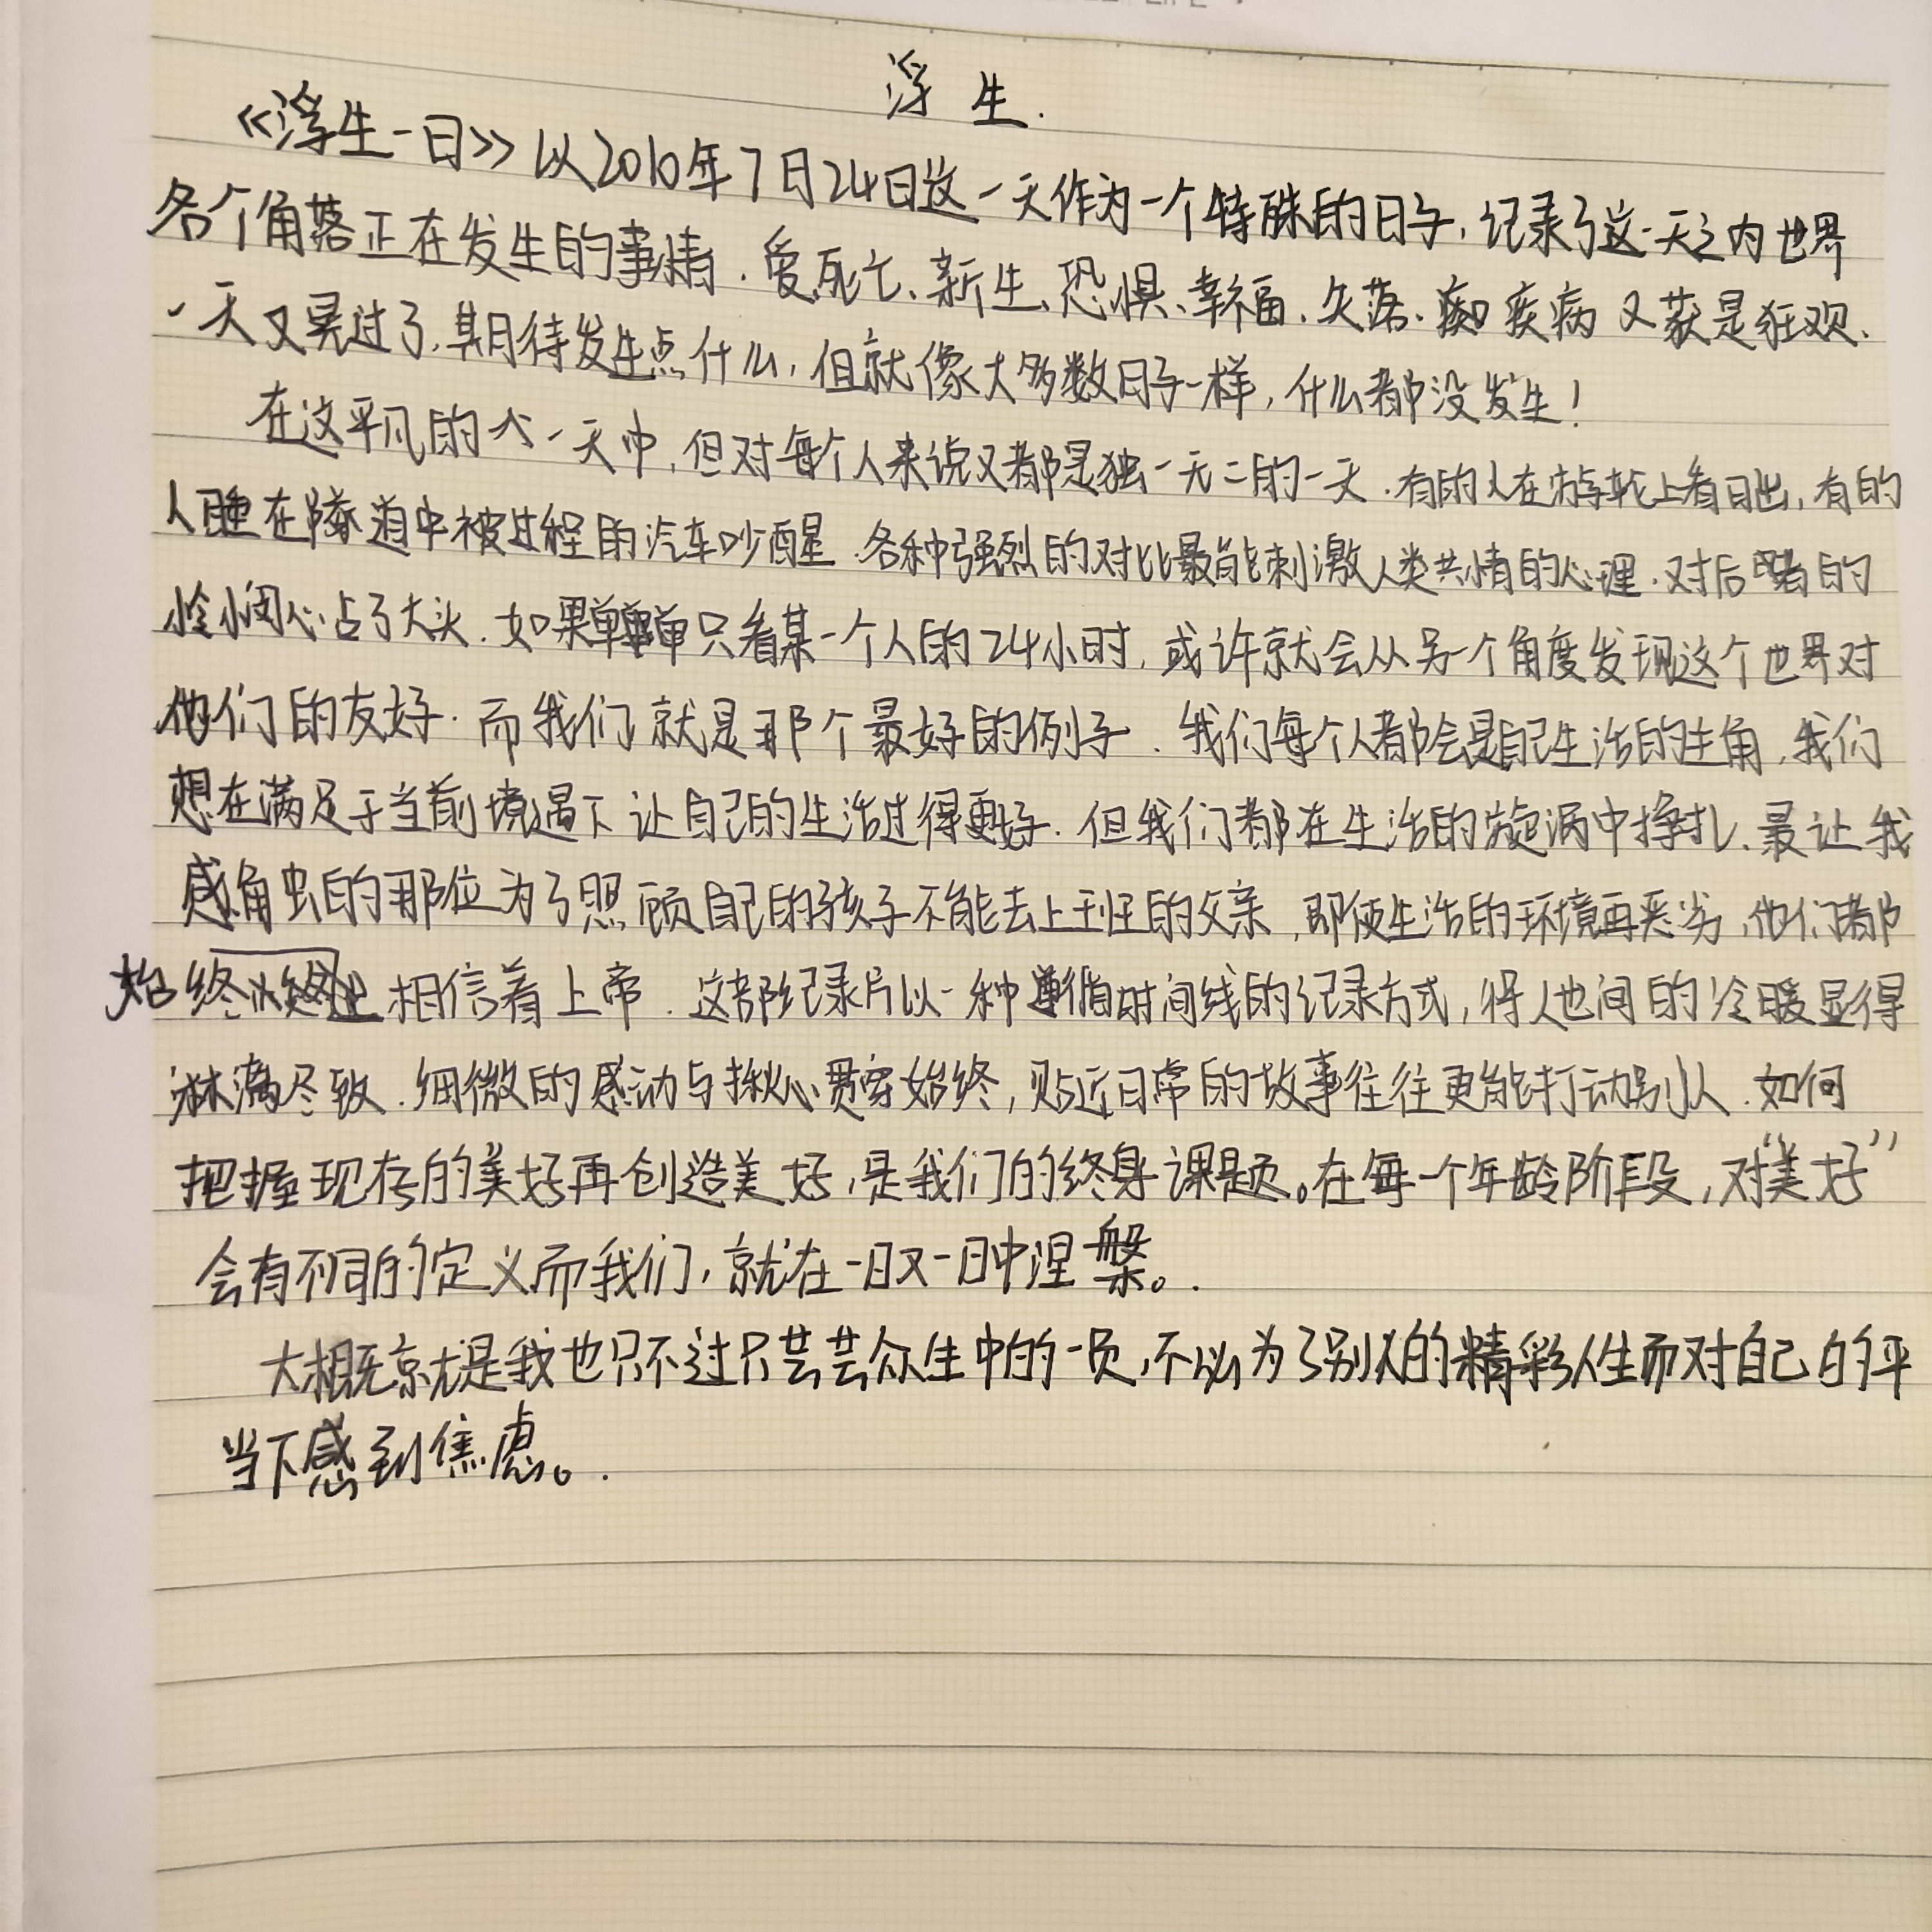 浮生.
《浮生一日》以2010年7月24日这一天作为一个特殊的日子,记录了这一天之内世界
各个角落正在发生的事情.爱、死亡、新生、恐惧、幸福、失落、疾病 又获是狂观、
一天又晃过了,期待发生点什么,但就像大多数日子一样,什么都没发生!
在这平凡的一天中,但对每个人来说又都是独一无二的一天.有的人在游轮上看日出,有的
人睡在隧道中被过程的汽车吵醒.各种强烈的对比最能刺激人类共情的心理.对后者的
怜悯心占了大头.如果单单只看某一个人的24小时,或许就会从另一个角度发现这个世界对
他们的友好.而我们就是那个最好的例子.我们每个人都会是自己生活的主角,我们
想在满足于当前境遇下让自己的生活过得更好.但我们都在生活的旋涡中挣扎、最让我
感触的那位为了照顾自己的孩子不能去上班的父亲,即使生活的环境再恶劣,他们都
始终相信着上帝.这部纪录片以一种遵循时间线的记录方式,将人世间的冷暖显得
淋漓尽致.细微的感动与揪心贯穿始终,贴近日常的故事往往更能打动别人.如何
把握现存的美好再创造美好,是我们的终身课题。在每一个年龄阶段,对“美好”
会有不同的定义而我们,就在一日又一日中涅槃。.
大概就是我也只不过只芸芸众生中的一员,不必为了别人的精彩人生而对自己的平
当下感到焦虑。.